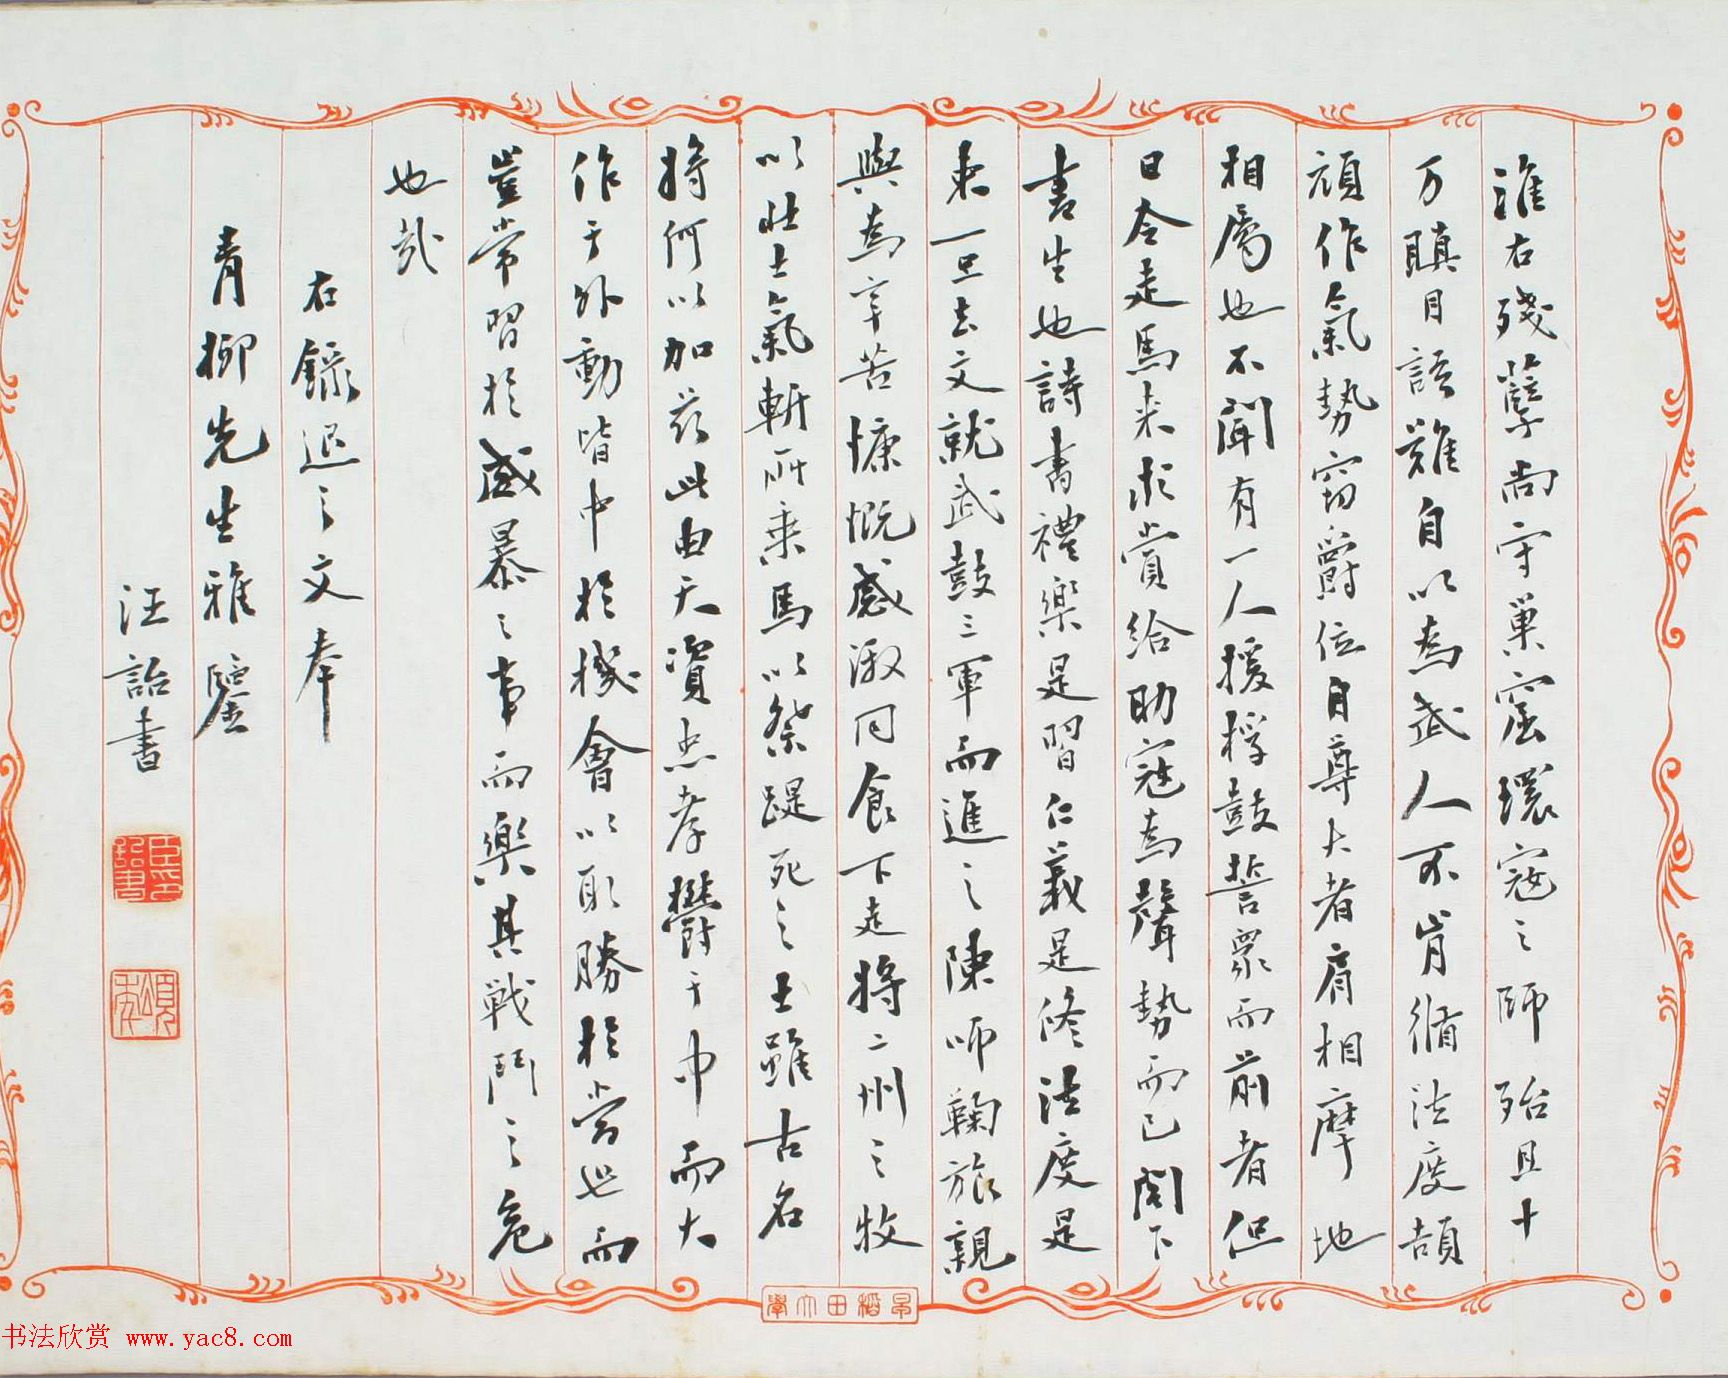 淮右殘孽尚守巢窟環寇之師殆且十
万瞋目語難自以為武人不肯循法度頡
頏作氣勢竊爵位自尊大者肩相摩地
相屬也不聞有一人援桴鼓誓眾而前者但
日令走馬来求賞給助寇為聲勢而已閣下
書生也詩書禮樂是習仁義是修法度是
束一旦去文就武鼓三軍而進之陳師鞠旅親
與為辛苦慷慨感激同食下走將二州之牧
以壮士氣斬所乘馬以祭踶死之士雖古名
將何以加茲此由天資忠孝鬱于中而大
作于外動皆中於機會以取勝於當世而
豈常習於威暴之事而樂其戰鬥之危
也哉
右錄退之文奉
青柳先生雅鑒
汪詒書
頌年
早稻田大學
书法欣赏 www.yac8.com